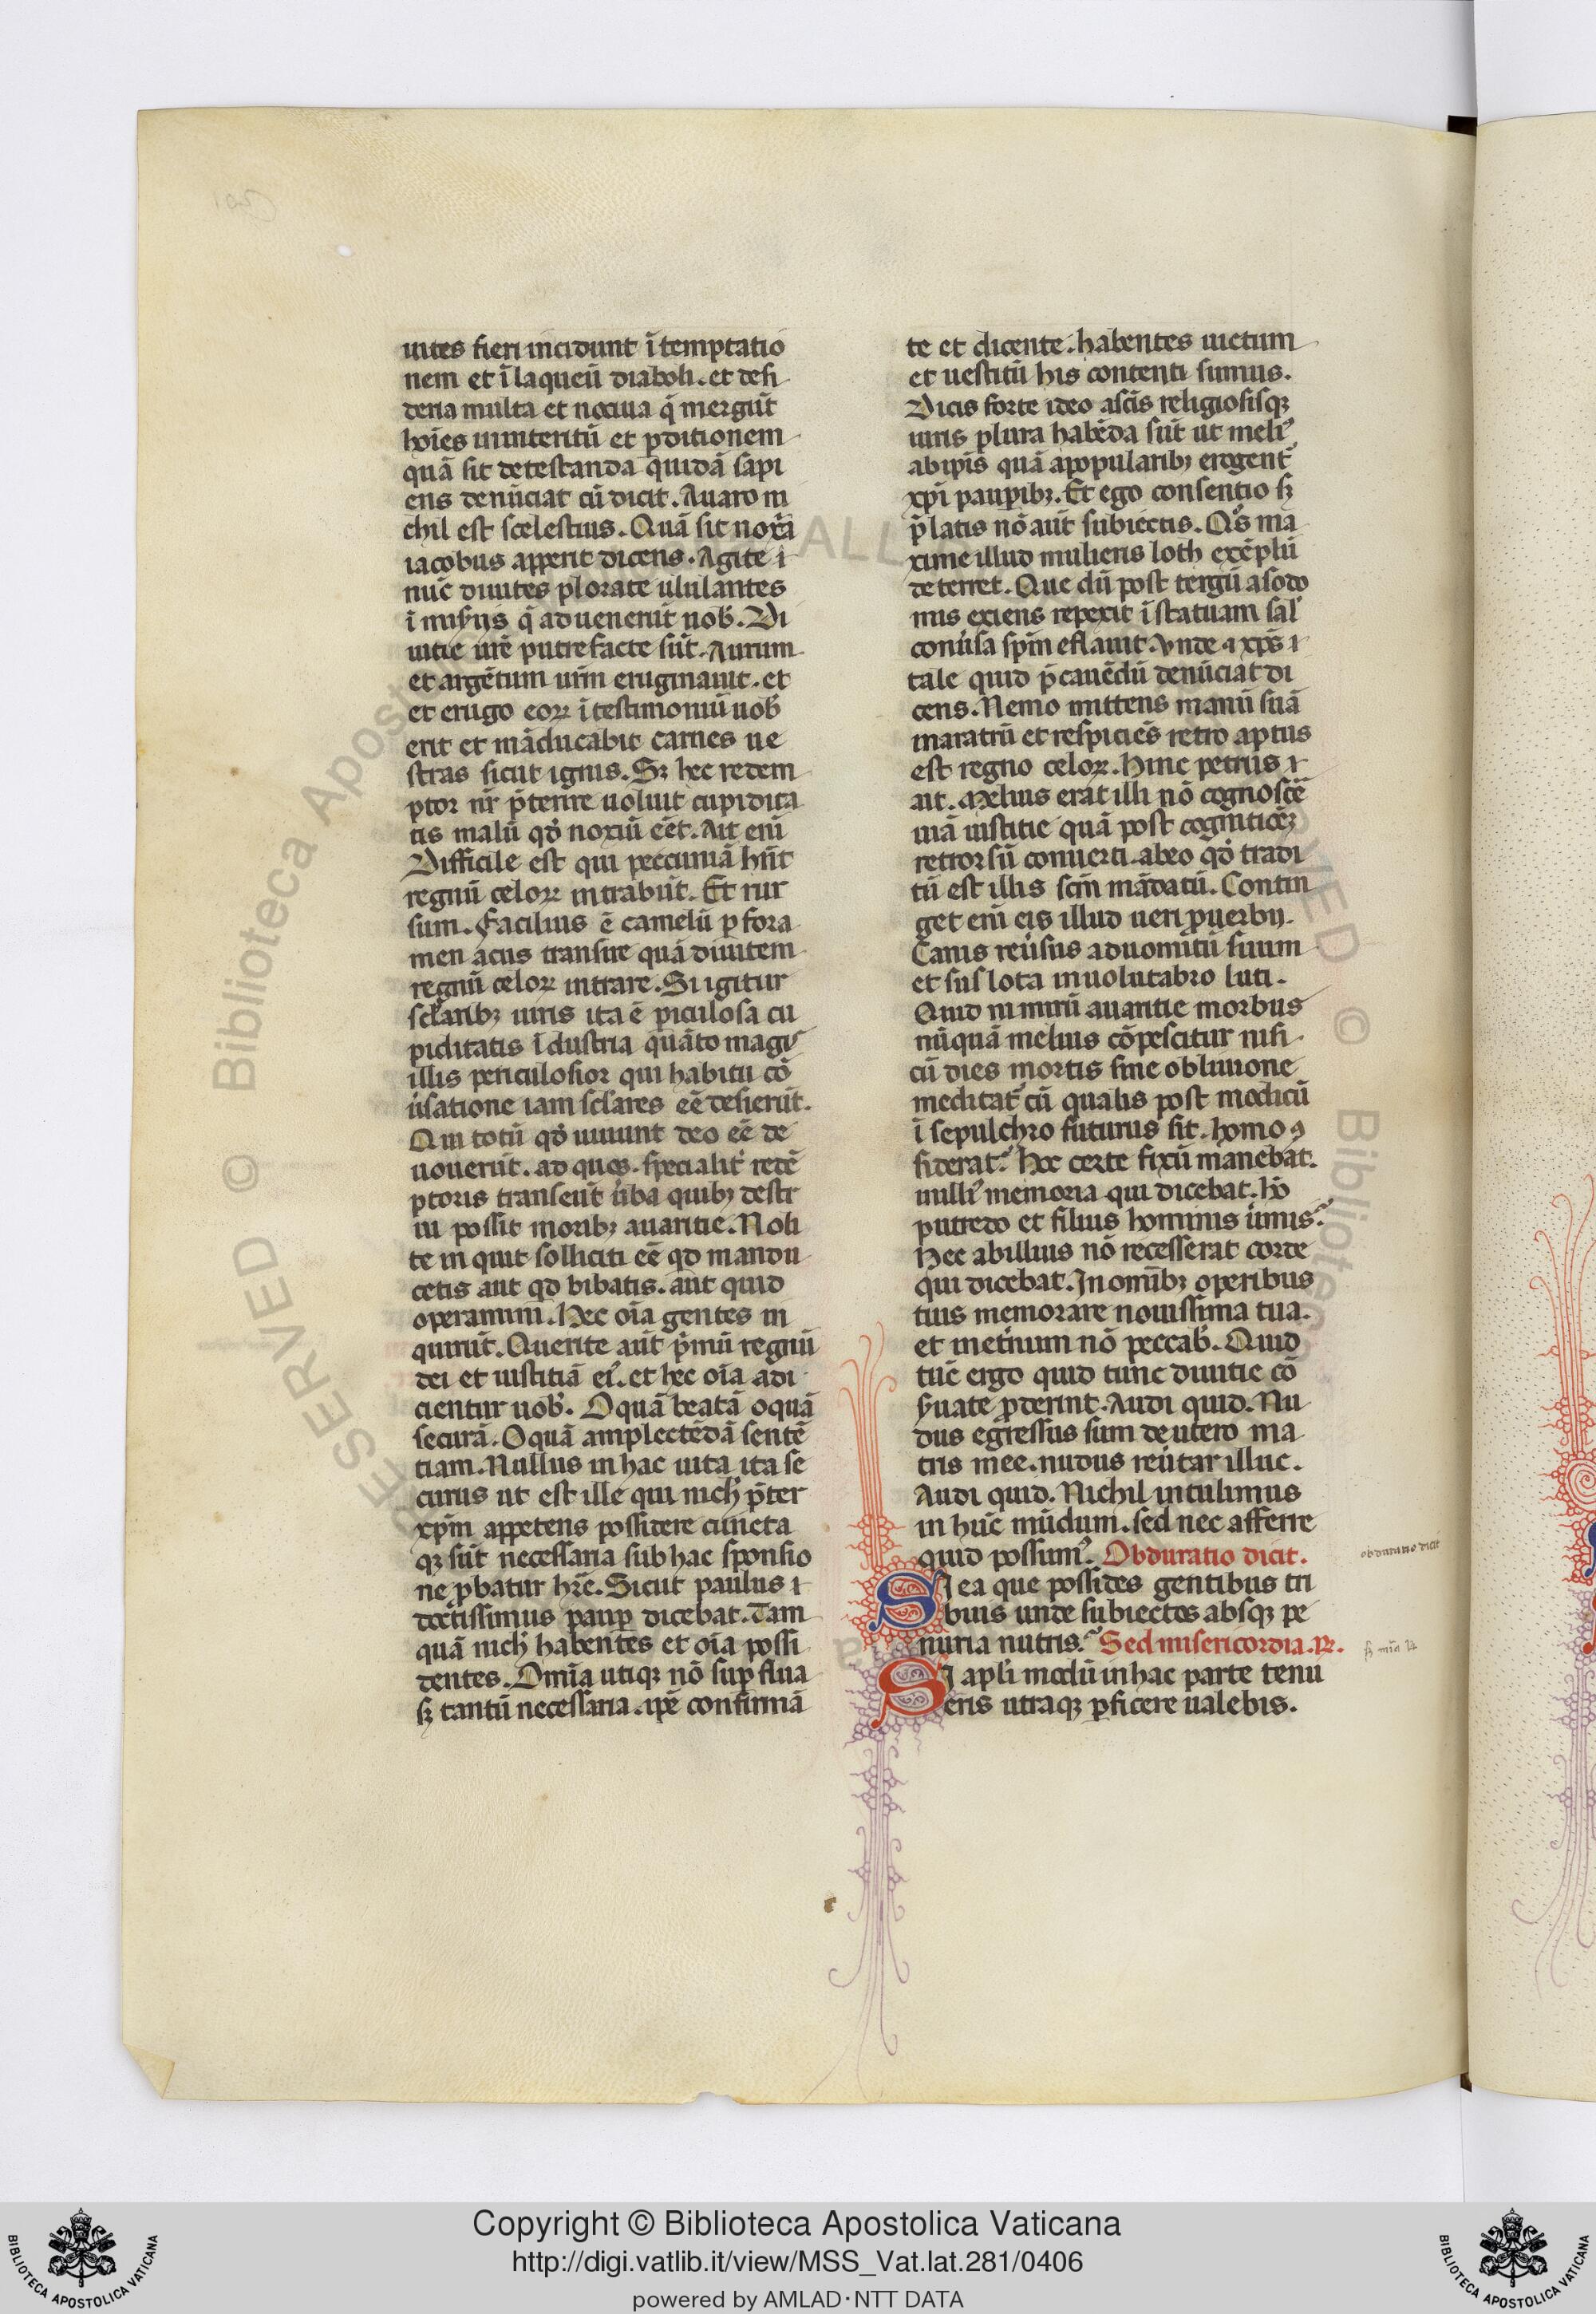 uites fieri incidunt ĩ temptatio
nem et ĩ laqueũ diaboli. et desi
deria multa et nociua q̃ mergũt
hoĩes in interitũ et ꝑditionem
quã sit detestanda quidã sapi
ens denũciat cũ dicit. Auaro ni
chil est scelestius. Quã sit noxia
iacobus apperit dicens. Agite
nũc diuites plorate ululantes
ĩ misĩijs q̃ aduenerũt uob̃. Di
uitie ũre putrefacte sũt. Aurum
et argẽtum ur̃m eruginauit. et
et erugo eoꝝ ĩ testimoniũ uob̃
erit et mãducabit carnes ue
stras sicut ignis. Sꝫ hec redem
ptor nr̃ p̃terire uoluit cupidita
tis malũ qđ noxiũ eẽt. Ait enĩ
Difficile est qui peccuniã hñt
regnũ celoꝝ intrabũt. Et rur
sum. Facilius ẽ camelũ ꝑ fora
men acus transire quã diuitem
regnũ celoꝝ intrare. Si igitur
sc̃laribꝫ uiris ita ẽ ꝑiculosa cu
piditatis ĩdustria quãto magꝭ
illis periculosior qui habitu cõ
ũsatione iam sc̃lares eẽ desierũt.
Qui totũ qđ uiuunt deo eẽ de
uouerũt. ad quos specialit̃ redẽ
ptoris transeũt ũba quibꝫ destr
ui possit moribꝫ auaritie. Noli
te inquit solliciti eẽ qd mandu
cetis aut qd bibatis. aut quid
operamini. Hec oĩa gentes in
quirũt. Querite aũt p̃mũ regnũ
dei et iustitiã eiꝰ. et hec oĩa adi
cientur uob̃. O quã beatã o quã
securã. O quã amplectẽdã sentẽ
tiam. Nullus in hac uita ita se
curus ut est ille qui nich̃ p̃ter
xp̃m appetens possidere cuncta
qꝫ sũt necessaria sub hac sponsio
ne ꝓbatur hr̃e. Sicut paulus
doctissimus pauꝑ dicebat. Tam
quã nich̃ habentes et oĩa possi
dentes. Omĩa utiqꝫ nõ suꝑflua
sꝫ tantũ necessaria. ip̃e confirmã
te et dicente. habentes uictum
et uestitũ his contenti sumus.
Dicis forte ideo a sc̃is religiosisqꝫ
uiris plura habẽda sũt ut meliꝰ
ab ip̃is quã a popularibꝫ erogent̃
xp̃i pauꝑibꝫ. Et ego consentio sꝫ
p̃latis nõ aũt subiectis. Q̊s ma
xime illud mulieris loth exẽplũ
deterret. Que dũ post tergũ a sodo
mis exiens repexit ĩ statuam sal̃
conũsa sp̃m eflauit. Vnde xp̃s
tale quid p̃cauẽdũ denũciat di
cens. Nemo mittens manũ suã
in aratrũ et respiciẽs retro aptus
est regno celoꝝ. Hinc petrus
ait. Melius erat illi nõ cognoscẽ
uiã iustitie quã post cognitioẽꝫ
retrorsũ conuerti. ab eo qđ tradi
tũ est illis sc̃m mãdatũ. Contin
get enĩ eis illud ueri ꝓuerbij.
Canis reũsus ad uomitũ suum
et sus lota in uolutabro luti.
Quid nimirũ auaritie morbus
nũquã melius cõpescitur nisi
cũ dies mortis sine obliuione
meditat̃ cũ qualis post modicũ
ĩ sepulchro futurus sit. homo ꝯ
siderat̃. Hoc certe fixũ manebat
illiꝰ memoria qui dicebat. Hõ
putredo et filius hominis ũmis.
Nec ab illius nõ recesserat corde
qui dicebat. In omĩbꝫ operibus
tuis memorare nouissima tua.
et in et̃num nõ peccab̃. Quid
tũc ergo quid tunc diuitie cõ
s̃uate ꝓderint. Audi quid. Nu
dus egressus sum de utero ma
tris mee. nudus reũtar illuc.
Audi quid. Nichil intulimus
in hũc mũdum. sed nec afferre
quid possumꝰ. Obduratio dicit.
Si ea que possides gentibus tri
buis unde subiectos absqꝫ pe
nuria nutris. Sed misericordia. ꝶ.
Si apl̃i modũ in hac parte tenu
eris utraqꝫ ꝑficere ualebis.
obduratio dicit
Copyright © Biblioteca Apostolica Vaticana
http://digi.vatlib.it/view/MSS_Vat.lat.281/0406
powered by AMLAD·NTT DATA
BIBLIOTECA APOSTOLICA VATICANA
BIBLIOTECA APOSTOLICA VATICANA